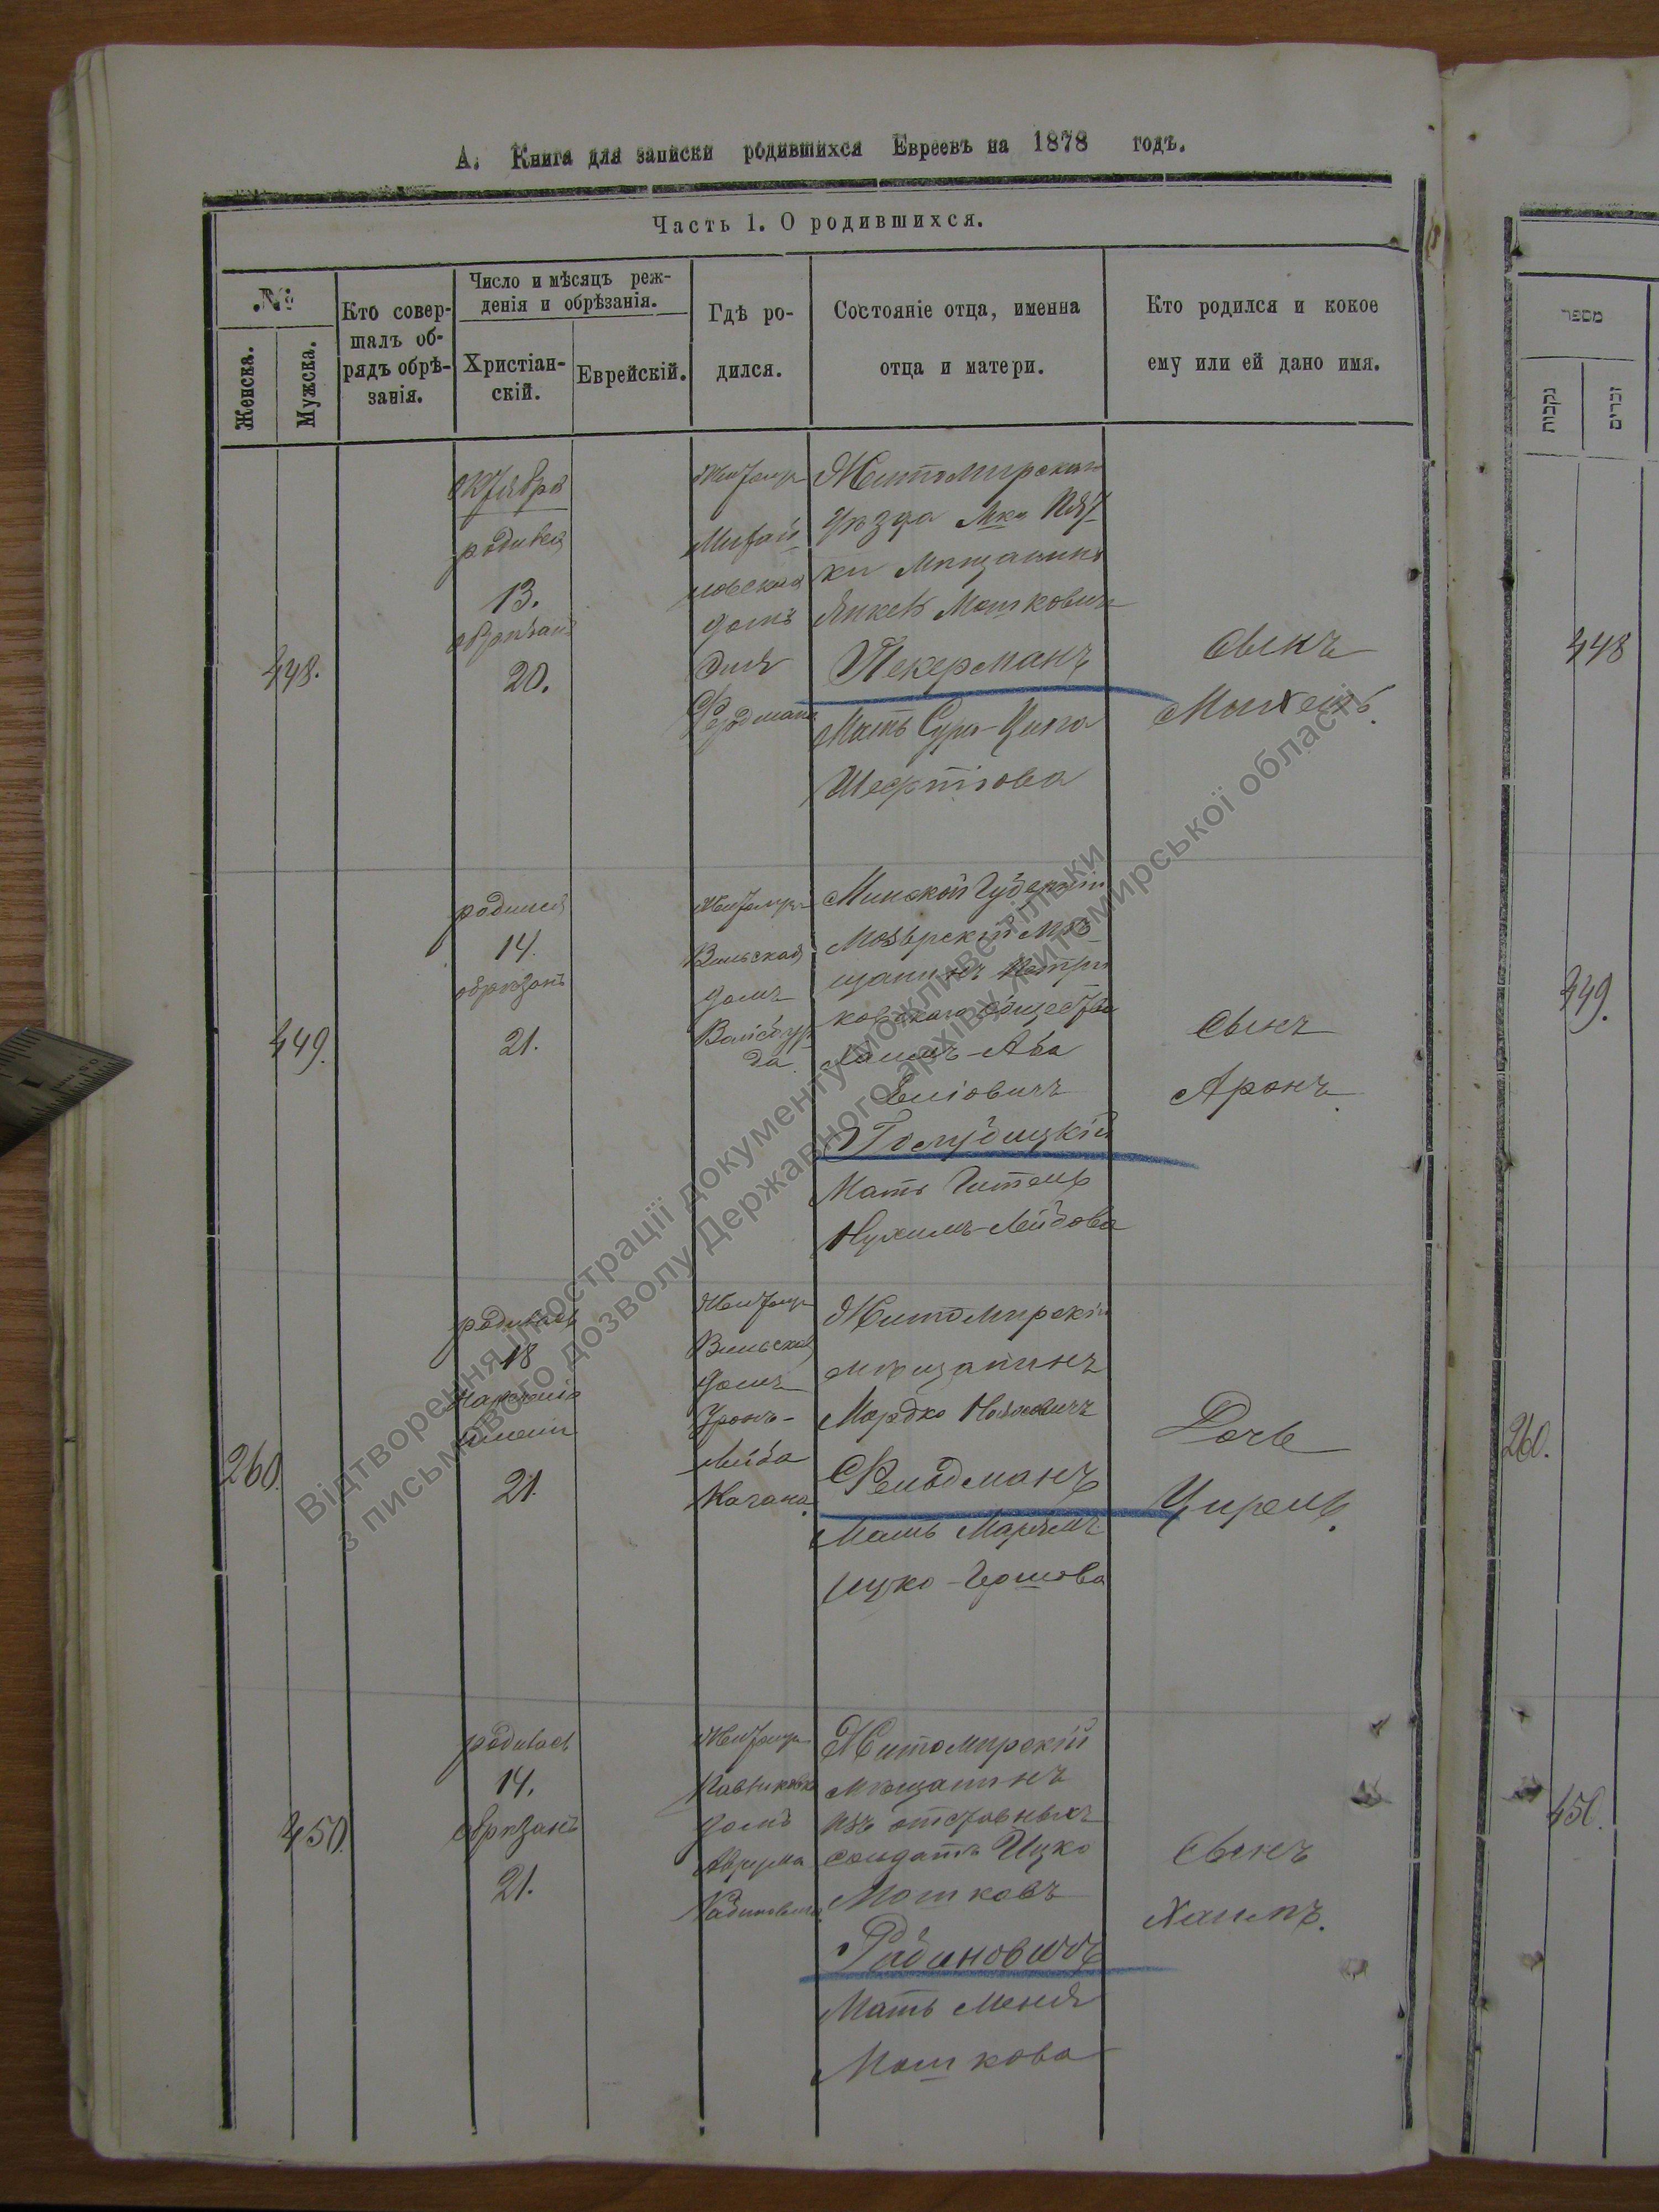 А. Книга для записки родившихся Евреевъ на 1878 годъ.
Часть 1. О родившихся.
№
Женска.
Мужска.
Кто совер-
шалъ об-
рядъ обрѣ-
занія.
Число и мѣсяцъ реж-
денія и обрѣзанія.
Христіан-
скій.
Еврейскій.
Гдѣ ро-
дился.
Состояніе отца, именна
отца и матери.
Кто родился и кокое
ему или ей дано имя.
448.
Октября
родился
13.
обрѣзанъ
20.
Житомир
Михай
ловская
домъ
Эля
Житомирскаго
уѣзда Мка
ки мѣщанинъ
Янкель Мошковичъ
Пекерманъ
Мать Сура-Цина
Шефтіова
Сынъ
449.
родился
14.
обрѣзанъ
21.
Житомир
Вильская
домъ
Минской Губерніи
Мозырскій мѣ
щанинъ Петри
ковскаго общества
Аба
Еліовичъ
Голубицкій
Мать Гитель
Нухимъ-Лейбова
Сынъ
Аронъ.
260.
родилась
18
нареченіе
имени
21.
Житомир
Вильская
домъ
Лейба
Кагана
Житомирскій
мѣщанинъ
Мордко
Фельдманъ
Мать Марьямъ
Ицко-Гершова
Дочь
Цирель.
450.
родился
14.
обрѣзанъ
21.
Житомир
домъ
Аврума
Рабиновича
Житомирскій
мѣщанинъ
изъ отставныхъ
солдатъ Ицко
Мошковъ
Рабиновичъ
Мать Меня
Мошкова
Сынъ
Хаимъ.
מספר
נקבות
זכרים
448
449.
260.
450.
Відтворення ілюстрації документу можливе тільки
з письмового дозволу Державного архіву Житомирської області